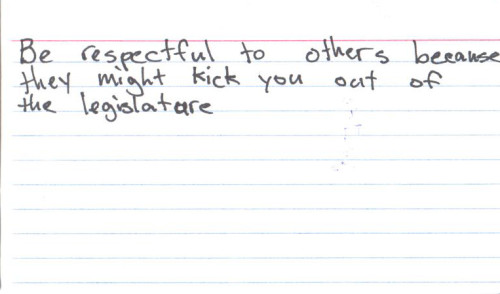 Be respectful to others because
they might kick you out of
the legislature